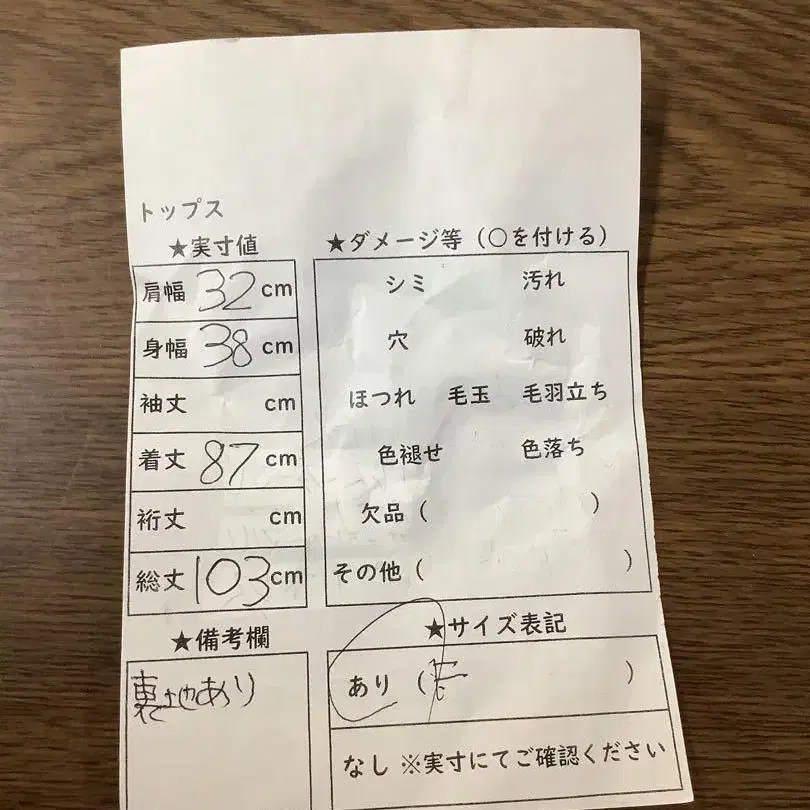 トップス
★実寸値
肩幅 32 cm
身幅 38 cm
袖丈 cm
着丈 87 cm
裄丈 cm
総丈 103 cm
★備考欄
裏地あり
★ダメージ等（○を付ける）
シミ 汚れ
穴 破れ
ほつれ 毛玉 毛羽立ち
色褪せ 色落ち
欠品（ ）
その他（ ）
★サイズ表記
あり（ ）
なし ※実寸にてご確認ください